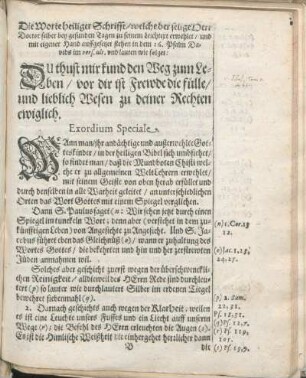 Die Worte heiliger Schrifft/ welche der selige Herr
Doctor selber bey gesunden Tagen zu seinem Leichtext erwehlet/ und
mit eigener Hand auffgesetzet stehen in dem 16. Psalm Da-
vids im vers. ult. und lauten wie folget:
DU thust mir kund den Weg zum Le-
ben/ vor dir ist Frewde die fülle/
und lieblich Wesen zu deiner Rechten
ewiglich.
Exordium Speciale.
WAnn man/ihr andächtige und außerwehlte Got-
teskinder/ in der heiligen Bibel sich umbsiehet/
so findet man/ daß die Mundboten Christi welche
er zu allgemeinen Welt Lehrern erwehlet/
mit seinem Geiste von oben herab erfüllet und
durch denselben in alle Warheit geleitet/ an unterschiedlichen
Orten das Wort Gottes mit einem Spiegel verglichen.
Dann S. Paulus saget (n: Wir sehen jetzt durch einen
Spiegel im tunckeln Wort/ denn aber (verstehet in dem zu-
künfftigen Leben) von Angesicht zu Angesicht. Und S. Ja-
cobus führet eben das Gleichnüß (o) wann er zu haltung des
Wortes Gottes/ die bekehrten und hin und her zerstreweten
Jüden anmahnen wil.
Solches aber geschicht zuerst wegen der überschwencklichen
Reinigkeit/ alldieweil des HErrn Rede sind durchleu-
tert (p) so lauter wie durchläutert Silber im erdenen Tiegel
bewehret siebenmahl (q).
2. Darnach geschichts auch wegen der Klarheit/ weilen
es ist eine Leuchte unsers Fusses und ein Liecht auff unserem
Wege (r); die Befehl des HErrn erleuchten die Augen (s).
die Himlische Weißheit
D
die
(n) 1. Cor. 13
12.
(o) Jac. 1. 23,
24. 25.